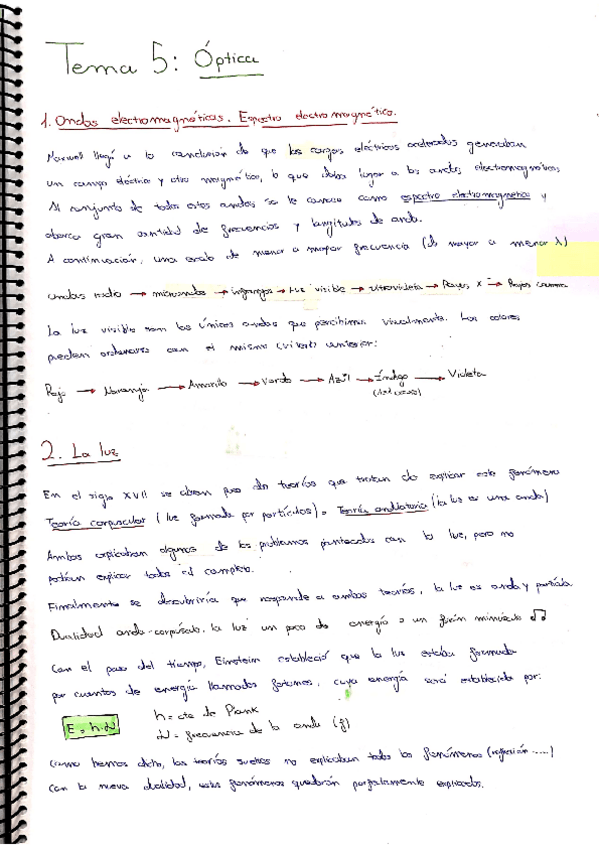 Tema 5: Óptica
1. Ondas electromagnéticas. Espectro electromagnético.
Maxwell llegó a la conclusión de que las cargas eléctricas aceleradas generaban
un campo eléctrico y otro magnético, lo que daba lugar a las ondas electromagnéticas
Al conjunto de todas estas ondas se le conoce como espectro electromagnético y
abarca gran cantidad de frecuencias y longitudes de onda.
A continuación, una escala de menor a mayor frecuencia (de mayor a menor λ)
Ondas radio → microondas → infrarrojos → Luz visible → Ultravioleta → Rayos X → Rayos Gamma
La luz visible son las únicas ondas que percibimos visualmente. Los colores
pueden ordenarse con el mismo criterio anterior:
Rojo → Naranja → Amarillo → Verde → Azul → Índigo → Violeta
2. La luz
En el siglo XVII se abren paso dos teorías que tratan de explicar este fenómeno
Teoría corpuscular (luz formada por partículas) o Teoría ondulatoria (la luz es una onda)
Ambas explicaban algunos de los problemas planteados con la luz, pero no
podían explicar todo el completo.
Finalmente se descubriría que responde a ambas teorías, la luz es onda y partícula
Dualidad onda-corpúsculo. la luz un poco de energía o un fotón minúsculo
Con el paso del tiempo, Einstein estableció que la luz estaba formada
por cuantos de energía llamados fotones, cuya energía será establecida por:
E = h·ν
h = cte de Plank
ν = frecuencia de la onda (f)
Como hemos dicho, las teorías sueltas no explicaban todos los fenómenos (refracción .....)
Con la nueva dualidad, estos fenómenos quedarán perfectamente explicados.